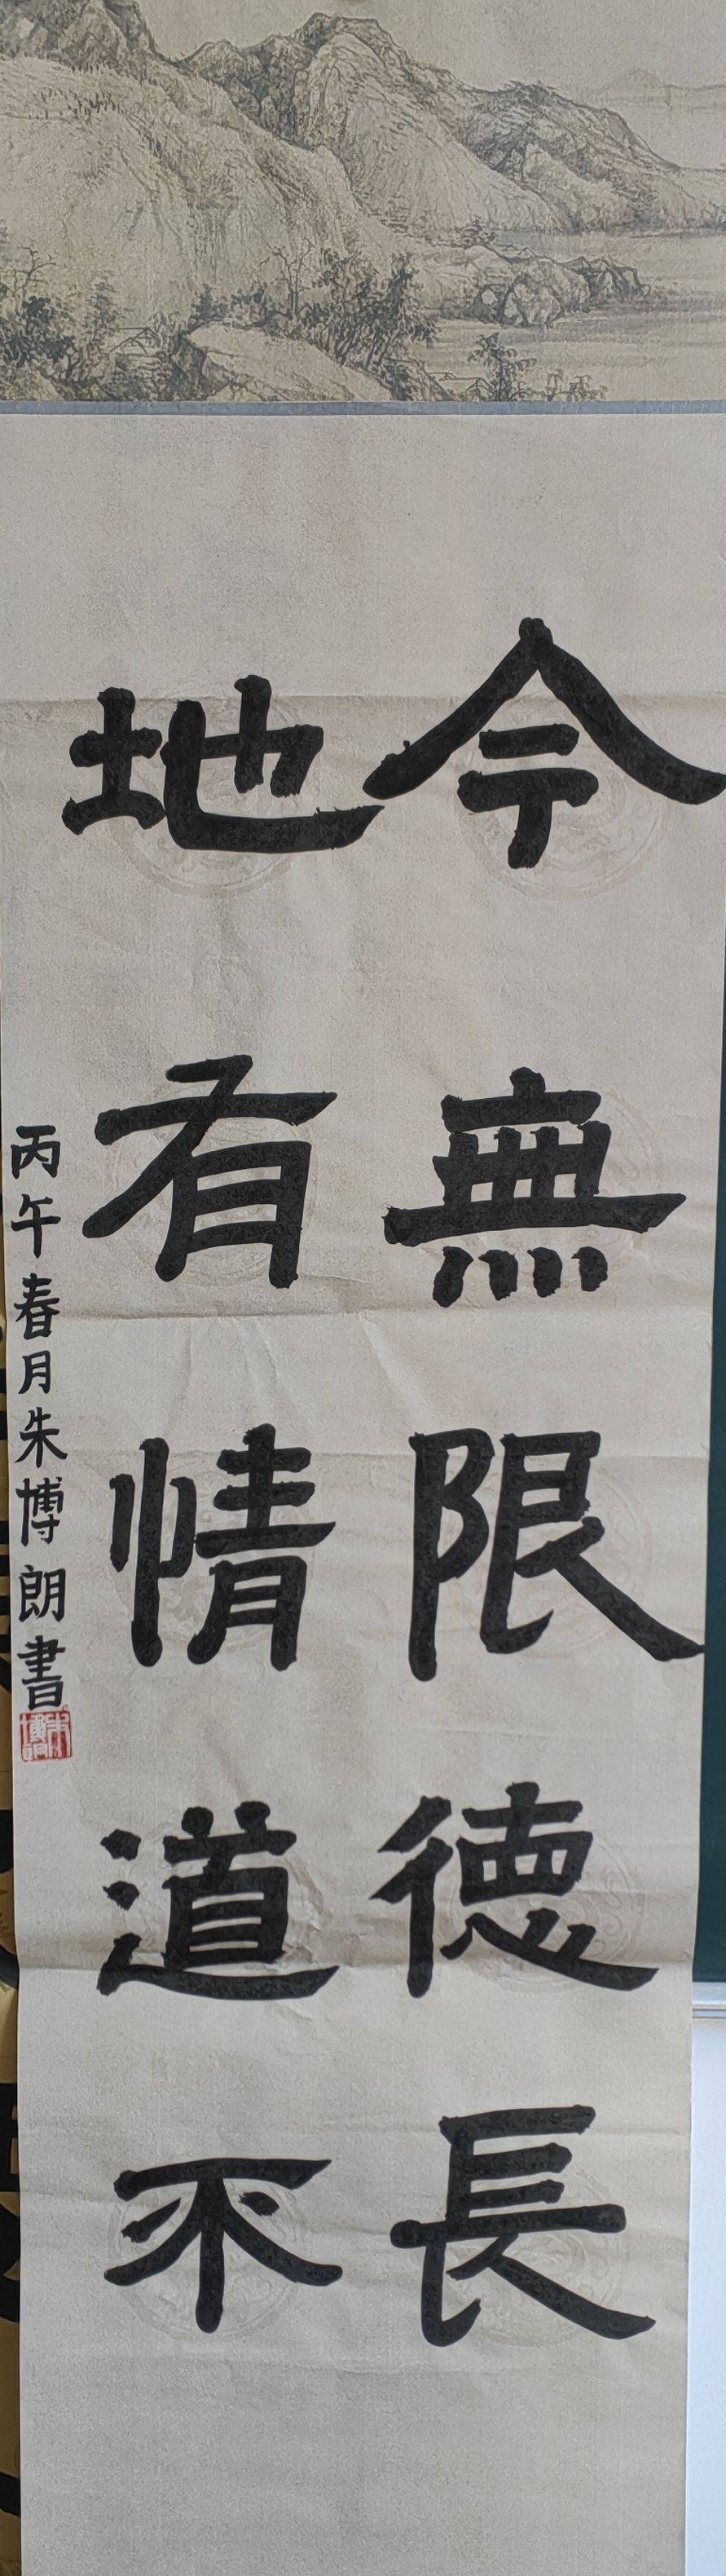 今無限德長
地有情道不
丙午春月朱博朗書
朱博朗